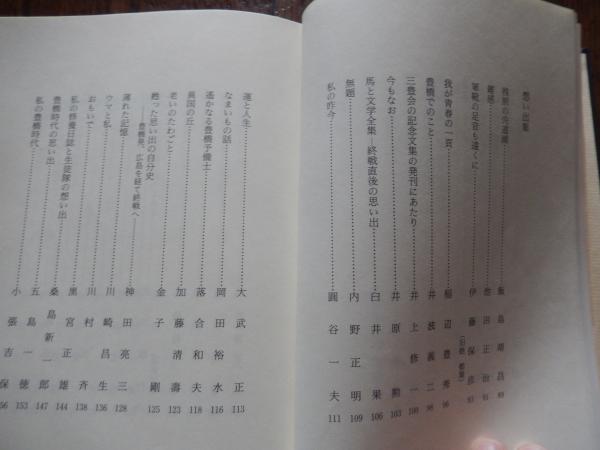 想い出集
雑感……池田正治 91
軍靴の足音も遠くに……伊藤保彦 93
我が青春の一頁……稲辺豊秀 96
豊橋でのこと……井波義二 98
三豊会の記念文集の発刊にあたり……井上修一 100
今もなお……井原勲 103
馬と文学全集 終戦直後の思い出……臼井果 106
無題……内野正明 109
私の昨今……圓谷一夫 111
運と人生……大武正 113
なまいもの話……岡田裕水 116
遥かなる豊橋予備士……落合和夫 118
異国の丘
老いのたわごと……加藤清壽 123
甦った思い出の自分史……金子剛 125
――豊橋発、広島を経て終戦へ――
薄れた記憶……神田亮三 128
ウマと私……川崎昌生 136
おもいで……川村斉 138
私の修養日誌と生徒隊の想い出……黒宮正雄 144
豊橋時代の思い出……桑島新一郎 147
私の豊橋時代……五島一徳 153
小張吉保 156